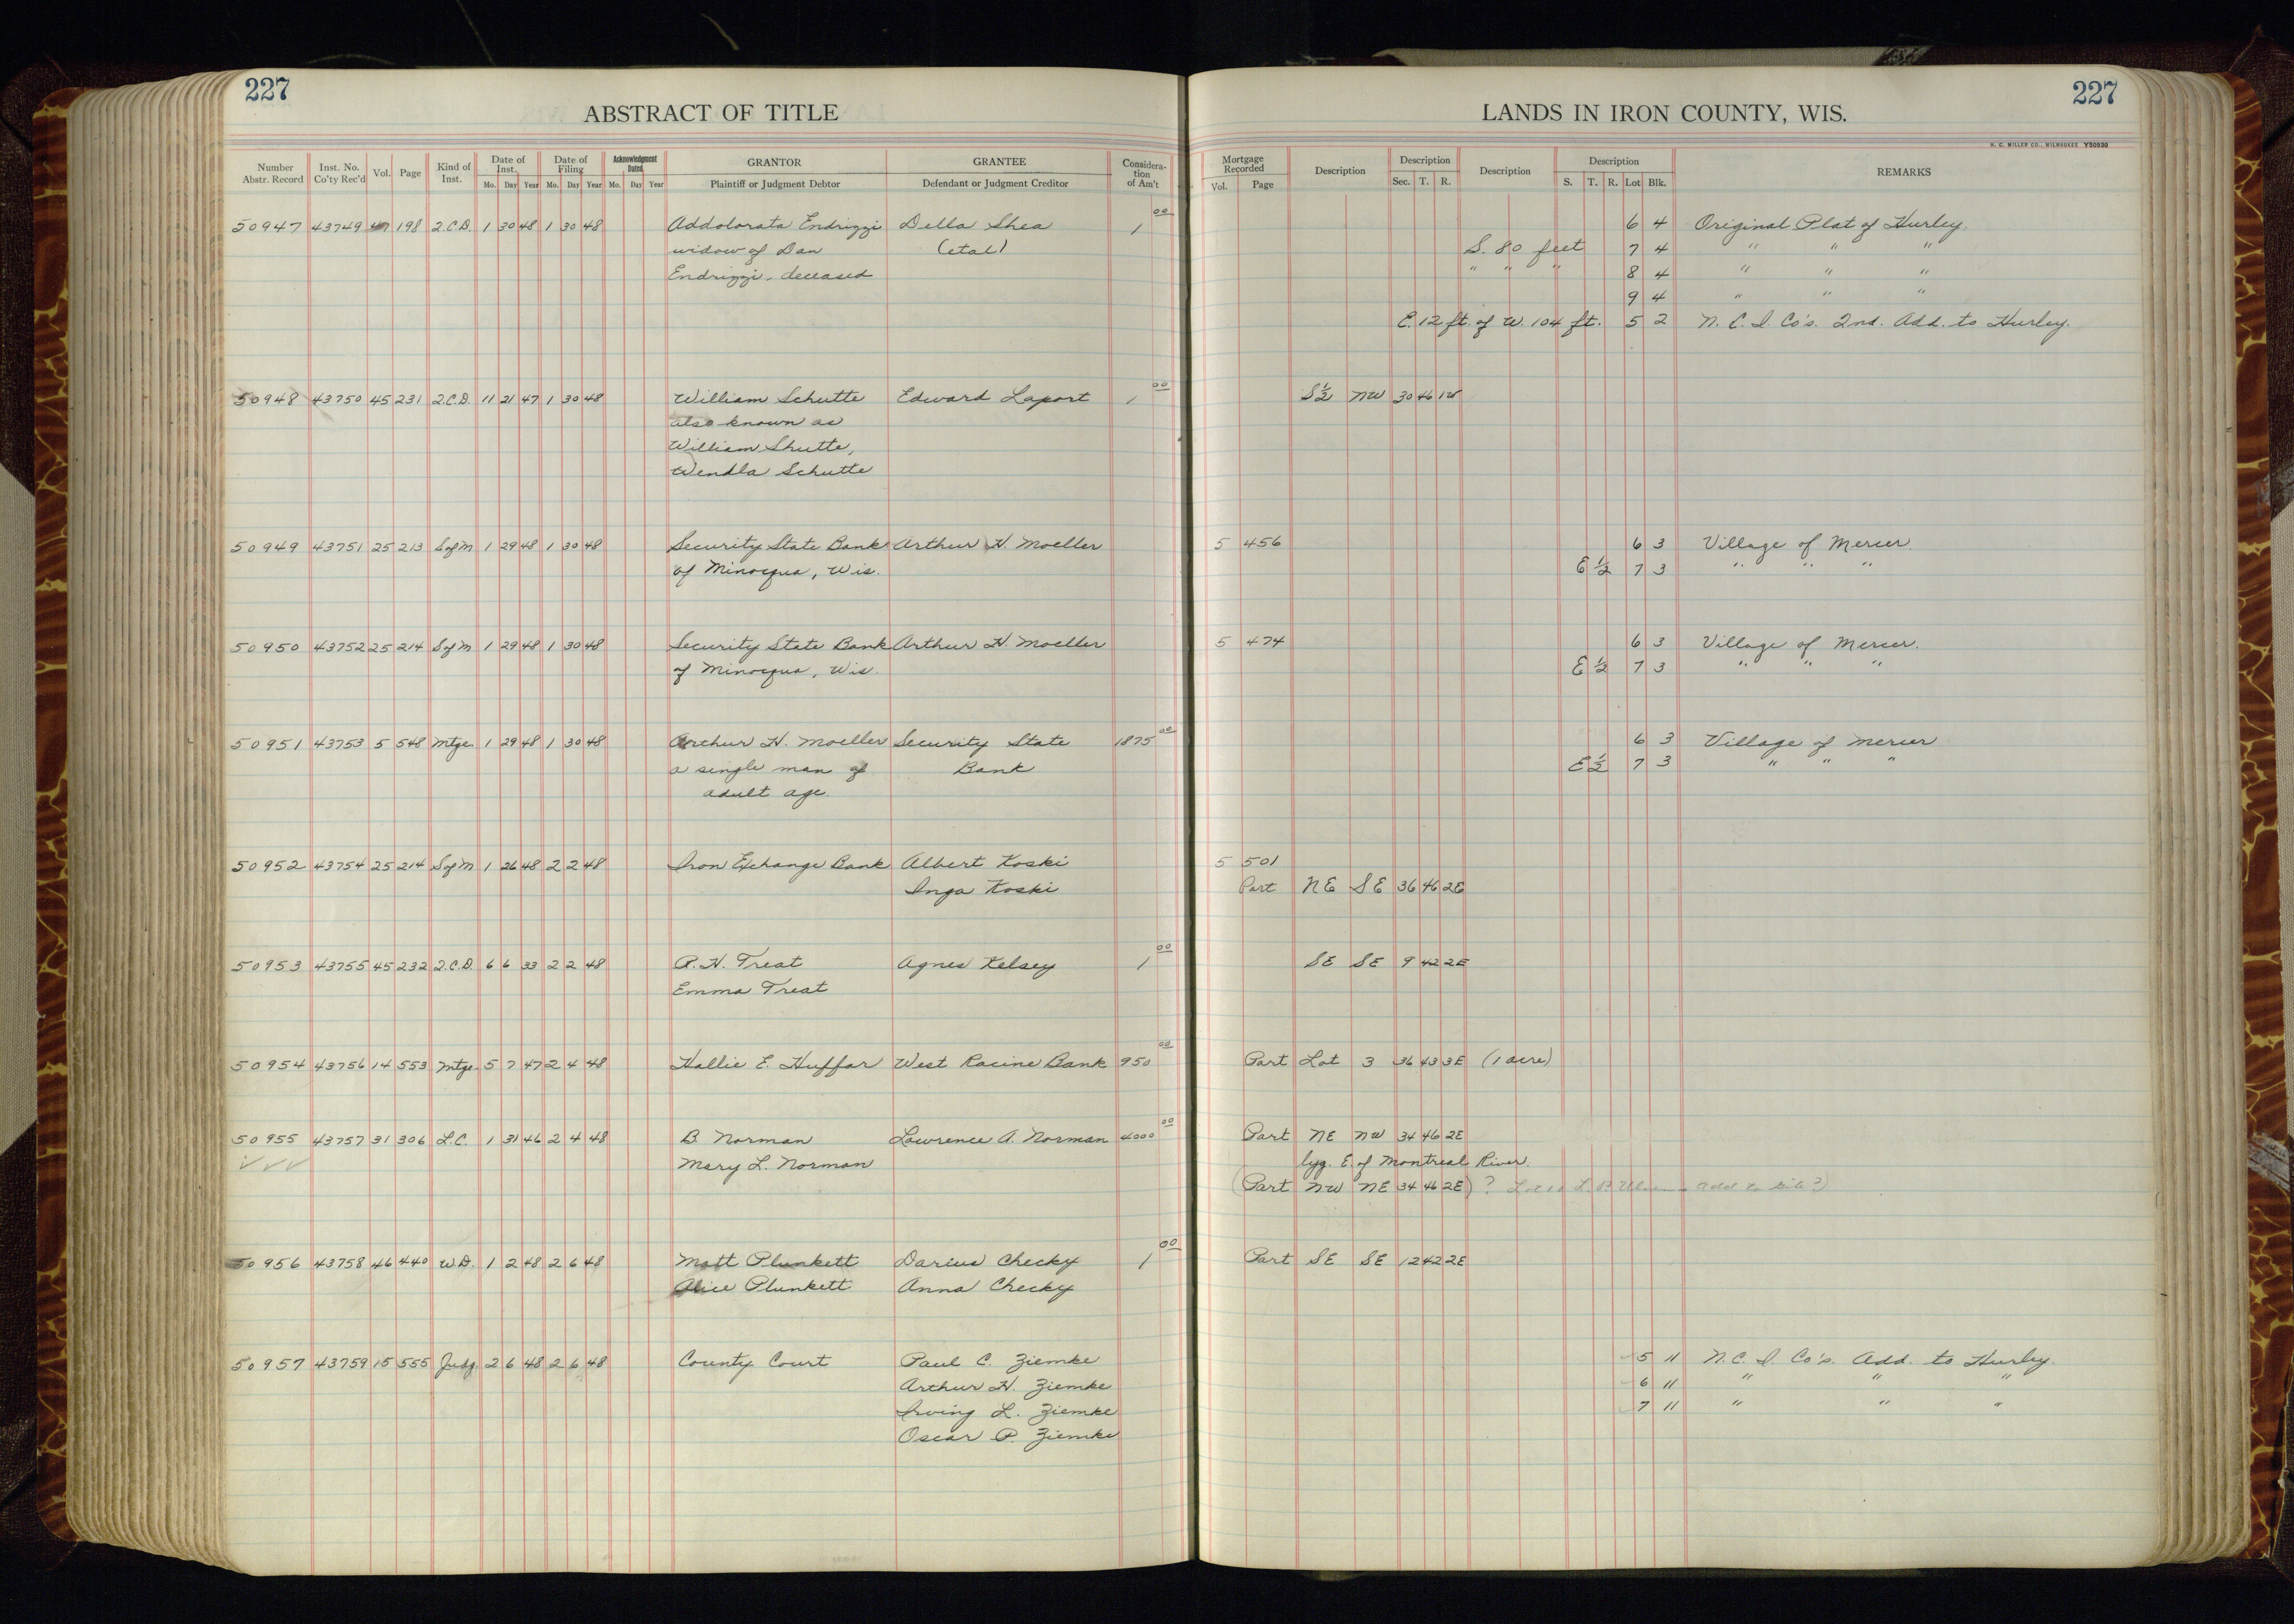 227
ABSTRACT OF TITLE
Number Abstr. Record | Inst. No. Co'ty Rec'd | Vol. | Page | Kind of Inst. | Date of Inst. Mo. Day Year | Date of Filing Mo. Day Year | Acknowledgment Dated Mo. Day Year | GRANTOR Plaintiff or Judgment Debtor | GRANTEE Defendant or Judgment Creditor | Considera-tion of Am't
50947 43749 198 Q.C.D. 1 30 48 1 30 48 Addolorata Endrizzi Della Shea 1 00
widow of Dan (etal)
Endrizzi, deceased
50948 43750 45 231 Q.C.D. 11 21 47 1 30 48 William Schutte Edward Laport 1 00
also known as
William Shutte,
Wendla Schutte
50949 43751 25 213 S of M 1 29 48 1 30 48 Security State Bank Arthur H. Moeller
of Minocqua, Wis.
50950 43752 25 214 S of M 1 29 48 1 30 48 Security State Bank Arthur H. Moeller
of Minocqua, Wis.
50951 43753 5 548 Mtge. 1 29 48 1 30 48 Arthur H. Moeller Security State 1875 00
a single man of Bank
adult age.
50952 43754 25 214 S of M 1 26 48 2 2 48 Iron Exchange Bank Albert Koski
Inga Koski
50953 43755 45 232 Q.C.D. 6 6 33 2 2 48 R. H. Treat Agnes Kelsey 1 00
Emma Treat
50954 43756 14 553 Mtge. 5 7 47 2 4 48 Hallie E. Huffar West Racine Bank 950 00
50955 43757 31 306 L.C. 1 31 46 2 4 48 B. Norman Lawrence A. Norman 4000 00
Mary L. Norman
50956 43758 46 440 W.D. 1 2 48 2 6 48 Matt Plunkett Darius Checky 1 00
Alice Plunkett Anna Checky
50957 43759 15 555 Judg. 2 6 48 2 6 48 County Court Paul C. Ziemke
Arthur H. Ziemke
Irving L. Ziemke
Oscar P. Ziemke
227
LANDS IN IRON COUNTY, WIS.
H. C. MILLER CO., MILWAUKEE Y50930
Mortgage Recorded Vol. Page | Description | Description Sec. T. R. | Description | Description S. T. R. Lot Blk. | REMARKS
6 4 Original Plat of Hurley.
S. 80 feet 7 4 " " "
" " " 8 4 " " "
9 4 " " "
E. 12 ft. of W. 104 ft. 5 2 N. C. I. Co's. 2nd. Add. to Hurley.
S½ NW 30 46 1W
5 456 6 3 Village of Mercer.
E ½ 7 3 " " "
5 474 6 3 Village of Mercer.
E ½ 7 3 " " "
6 3 Village of Mercer
E ½ 7 3 " " "
5 501
Part NE SE 36 46 2E
SE SE 9 42 2E
Part Lot 3 36 43 3E (1 acre)
Part NE NW 34 46 2E
lyg. E. of Montreal River.
(Part NW NE 34 46 2E) ?
Part SE SE 12 42 2E
5 11 N.C. I. Co's. Add. to Hurley.
6 11 " " "
7 11 " " "